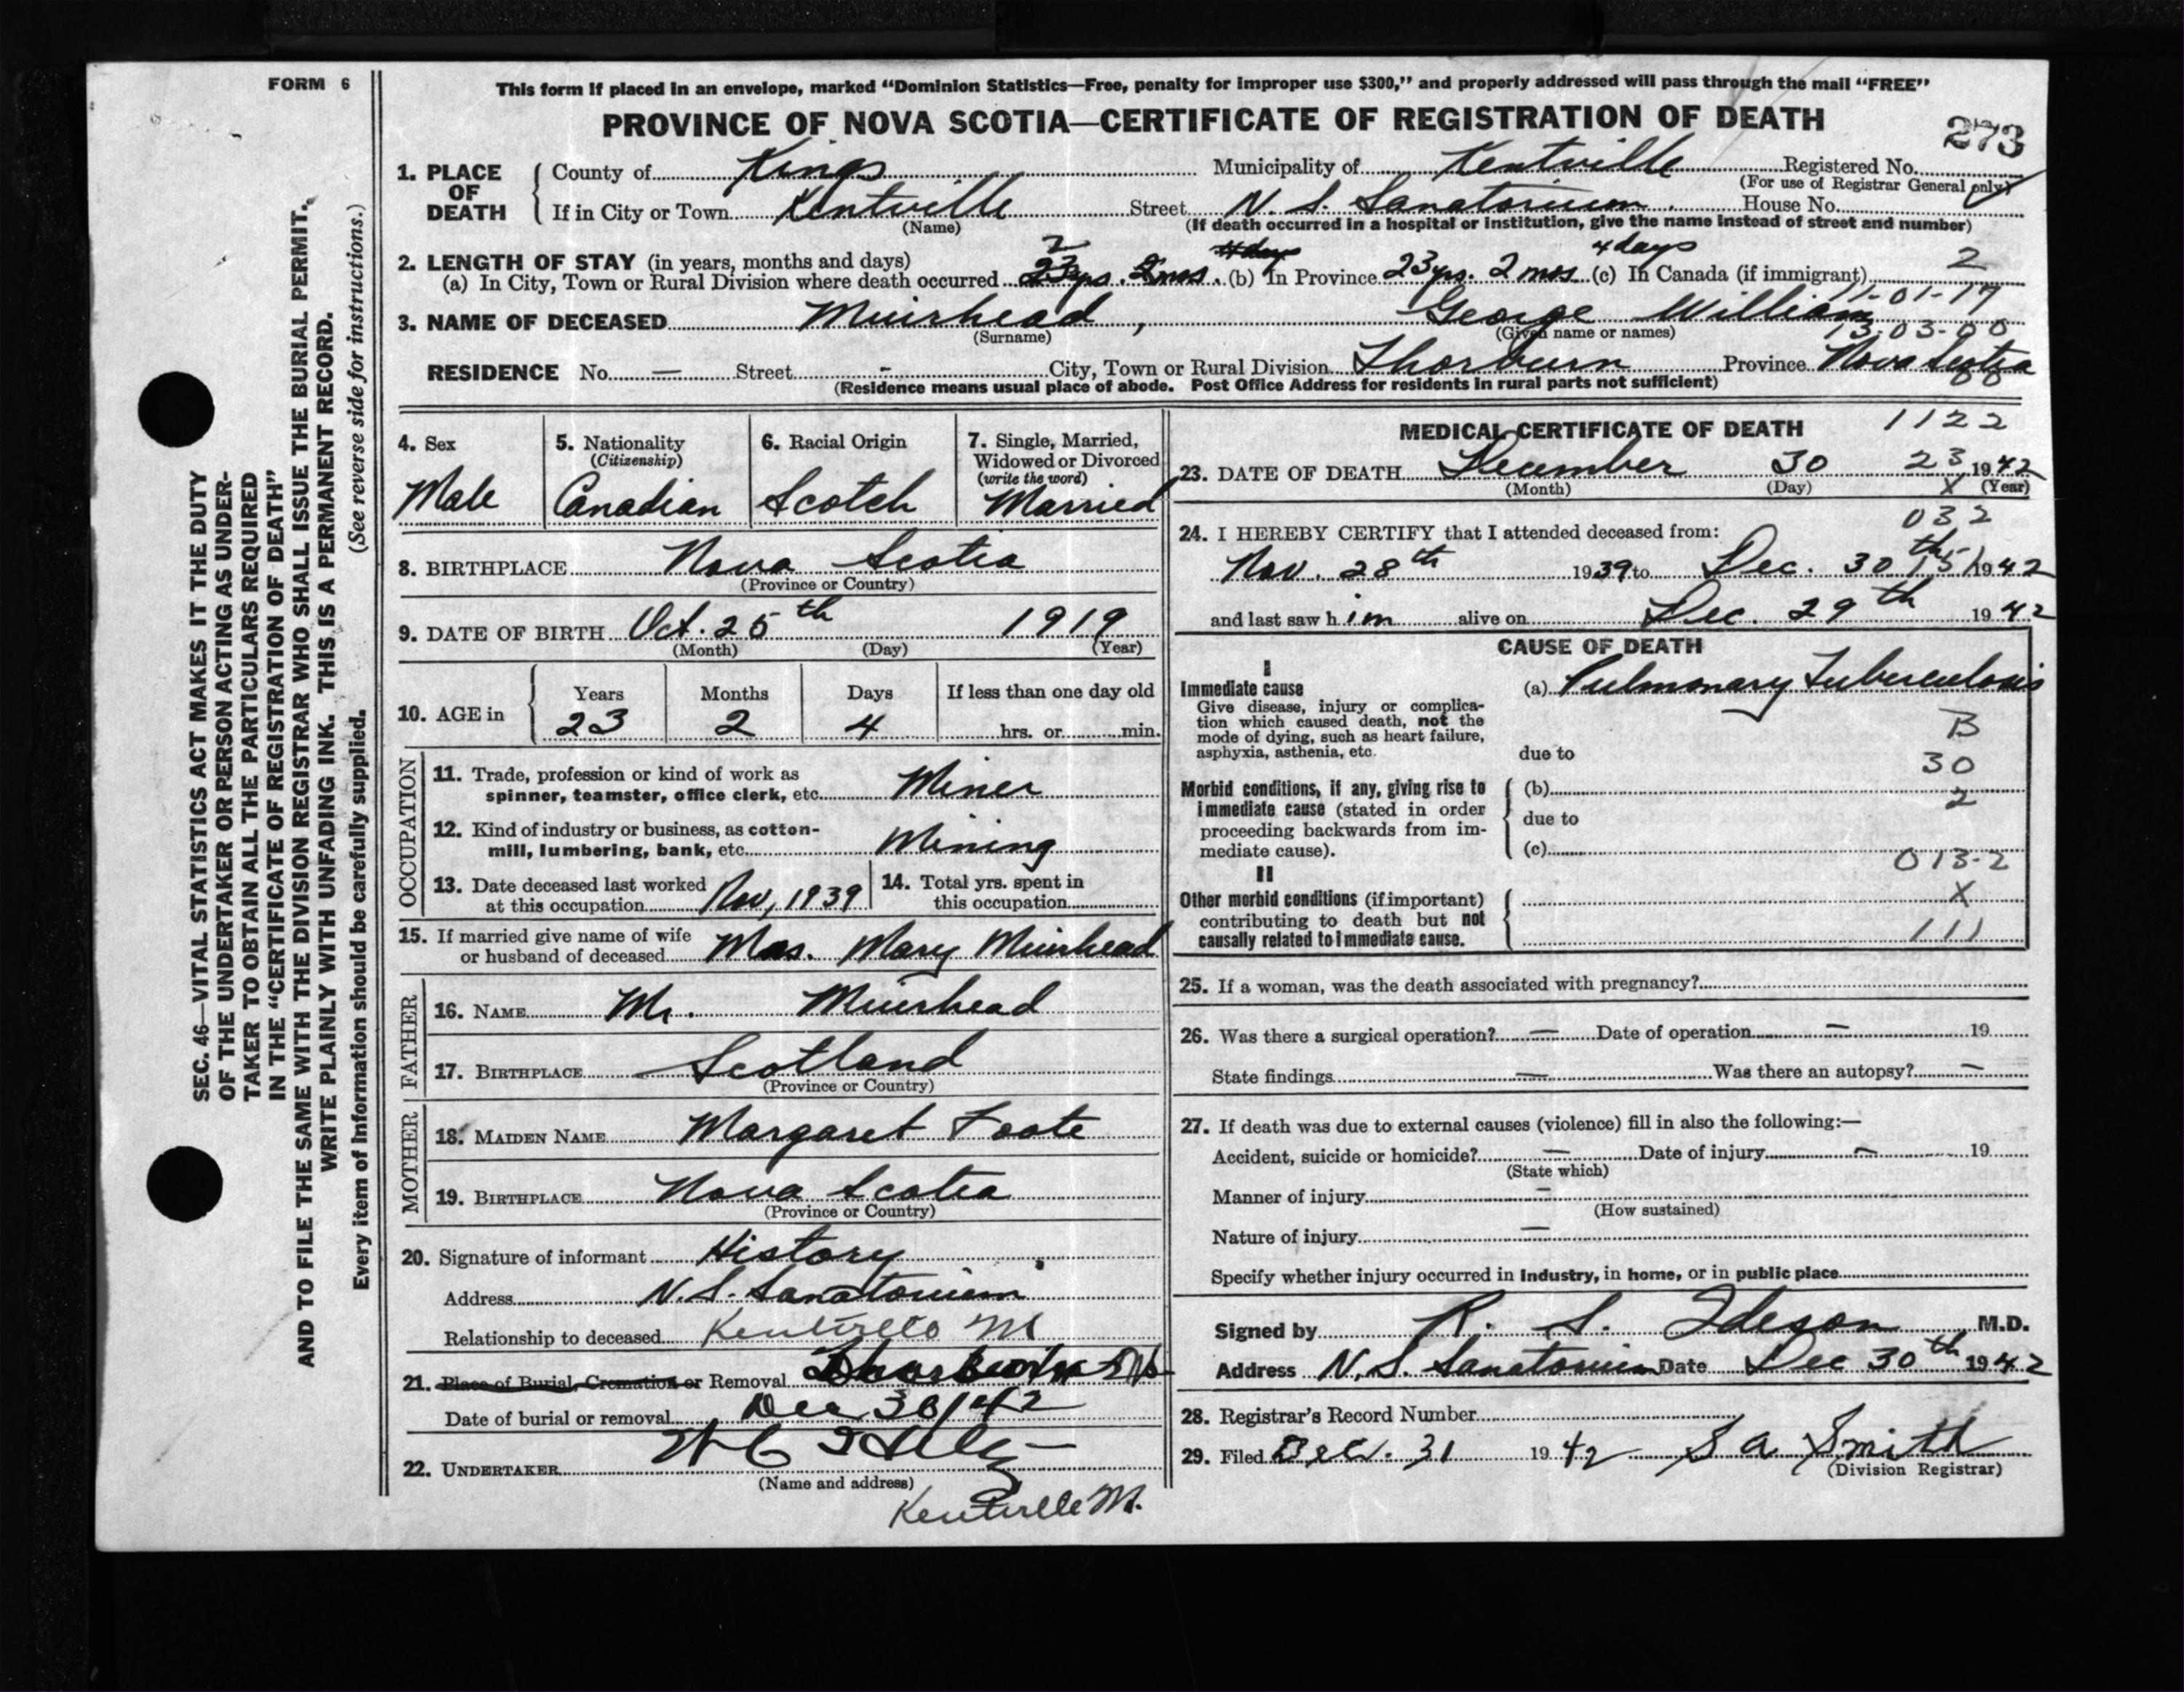 FORM 6
This form if placed in an envelope, marked “Dominion Statistics—Free, penalty for improper use $300,” and properly addressed will pass through the mail “FREE”
PROVINCE OF NOVA SCOTIA—CERTIFICATE OF REGISTRATION OF DEATH
273
1. PLACE OF DEATH
County of Kings Municipality of Kentville Registered No.
(For use of Registrar General only)
If in City or Town Kentville Street N. S. Sanatorium. House No.
(Name) (If death occurred in a hospital or institution, give the name instead of street and number)
2. LENGTH OF STAY (in years, months and days) 4 days 4 days
(a) In City, Town or Rural Division where death occurred 23 yrs. 2 mos. (b) In Province 23 yrs. 2 mos. (c) In Canada (if immigrant) 2
11-01-17
3. NAME OF DECEASED Muirhead, George William
(Surname) (Given name or names) 13-03-00
RESIDENCE No. — Street - City, Town or Rural Division Thorburn Province Nova Scotia
(Residence means usual place of abode. Post Office Address for residents in rural parts not sufficient)
4. Sex
Male
5. Nationality
(Citizenship)
Canadian
6. Racial Origin
Scotch
7. Single, Married,
Widowed or Divorced
(write the word)
Married
8. BIRTHPLACE Nova Scotia
(Province or Country)
9. DATE OF BIRTH Oct. 25th 1919
(Month) (Day) (Year)
10. AGE in
Years Months Days If less than one day old
23 2 4 hrs. or min.
OCCUPATION
11. Trade, profession or kind of work as
spinner, teamster, office clerk, etc. Miner
12. Kind of industry or business, as cotton-
mill, lumbering, bank, etc. Mining
13. Date deceased last worked
at this occupation Nov, 1939
14. Total yrs. spent in
this occupation
15. If married give name of wife
or husband of deceased Mrs. Mary Muirhead
FATHER
16. NAME Mr. Muirhead
17. BIRTHPLACE Scotland
(Province or Country)
MOTHER
18. MAIDEN NAME Margaret Foote
19. BIRTHPLACE Nova Scotia
(Province or Country)
20. Signature of informant History
Address N. S. Sanatorium
Relationship to deceased Kentville
21. Place of Burial, Cremation or Removal Thorburn NS
Date of burial or removal Dec 30/42
22. UNDERTAKER
(Name and address)
Kentville
MEDICAL CERTIFICATE OF DEATH 1122
23. DATE OF DEATH December 30 23 1942
(Month) (Day) X (Year)
032
24. I HEREBY CERTIFY that I attended deceased from:
Nov. 28th 1939 to Dec. 30th 151 1942
and last saw him alive on Dec. 29th 1942
CAUSE OF DEATH
I
Immediate cause (a) Pulmonary Tuberculosis
Give disease, injury or complica-
tion which caused death, not the
mode of dying, such as heart failure,
asphyxia, asthenia, etc.
B
due to
30
Morbid conditions, if any, giving rise to
immediate cause (stated in order
proceeding backwards from im-
mediate cause).
(b)
2
due to
(c)
013-2
II
Other morbid conditions (if important)
contributing to death but not
causally related to immediate cause.
X
111
25. If a woman, was the death associated with pregnancy?
26. Was there a surgical operation? — Date of operation — 19
State findings — Was there an autopsy? —
27. If death was due to external causes (violence) fill in also the following:—
Accident, suicide or homicide? — Date of injury — 19
(State which)
Manner of injury —
(How sustained)
Nature of injury —
Specify whether injury occurred in industry, in home, or in public place
Signed by R. S. Ideson M.D.
Address N. S. Sanatorium Date Dec 30th 1942
28. Registrar's Record Number
29. Filed Dec. 31 1942 S A Smith
(Division Registrar)
SEC. 46—VITAL STATISTICS ACT MAKES IT THE DUTY
OF THE UNDERTAKER OR PERSON ACTING AS UNDER-
TAKER TO OBTAIN ALL THE PARTICULARS REQUIRED
IN THE “CERTIFICATE OF REGISTRATION OF DEATH”
AND TO FILE THE SAME WITH THE DIVISION REGISTRAR WHO SHALL ISSUE THE BURIAL PERMIT.
WRITE PLAINLY WITH UNFADING INK. THIS IS A PERMANENT RECORD.
Every item of information should be carefully supplied. (See reverse side for instructions.)